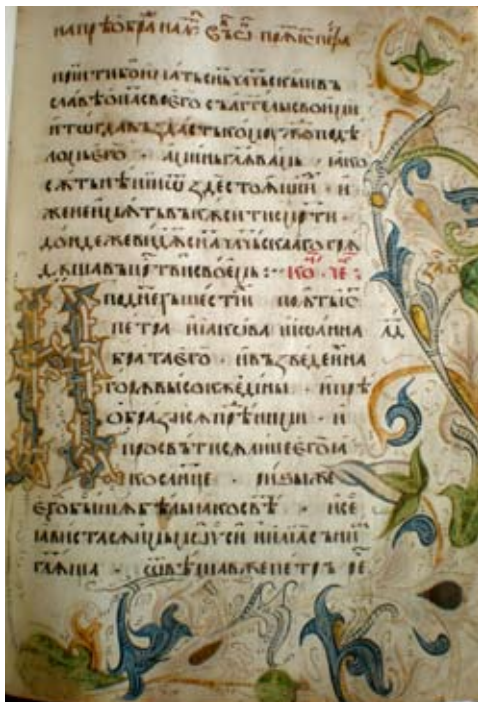 прїити бо имать сн҃ъ чл҃чьскыи въ
славѣ ѡц҃а своего съ агг҃елы своими
и тогда въздастъ комꙋжⷣо по дѣ
ломь его · аминь гл҃ѧ вамь · ꙗко
сѫть нѣции ѿ зде стоѧщїи · и
же не имѫть въкꙋсити съмр҃ти ·
дондеже видѧ сн҃а чл҃чьскааго грѧ
дѫща въ цр҃тви своемь : коⷩ че :
По дне шести поѧтъ іс҃
петра и іакѡва и іѡанна
брата его · и възведе и на
горѫ высокѫ едины · и прѣ
ѡбразисѧ прѣⷣ ними · и
просвѣтисѧ лице его іа
ко слнце · ризы же
его бышѧ бѣлы іако свѣⷮ · и се
іависта сѧ имь мѡѵси и илїа съ ниⷨ
гл҃ѧща · ѿвѣщав же петръ реⷱ